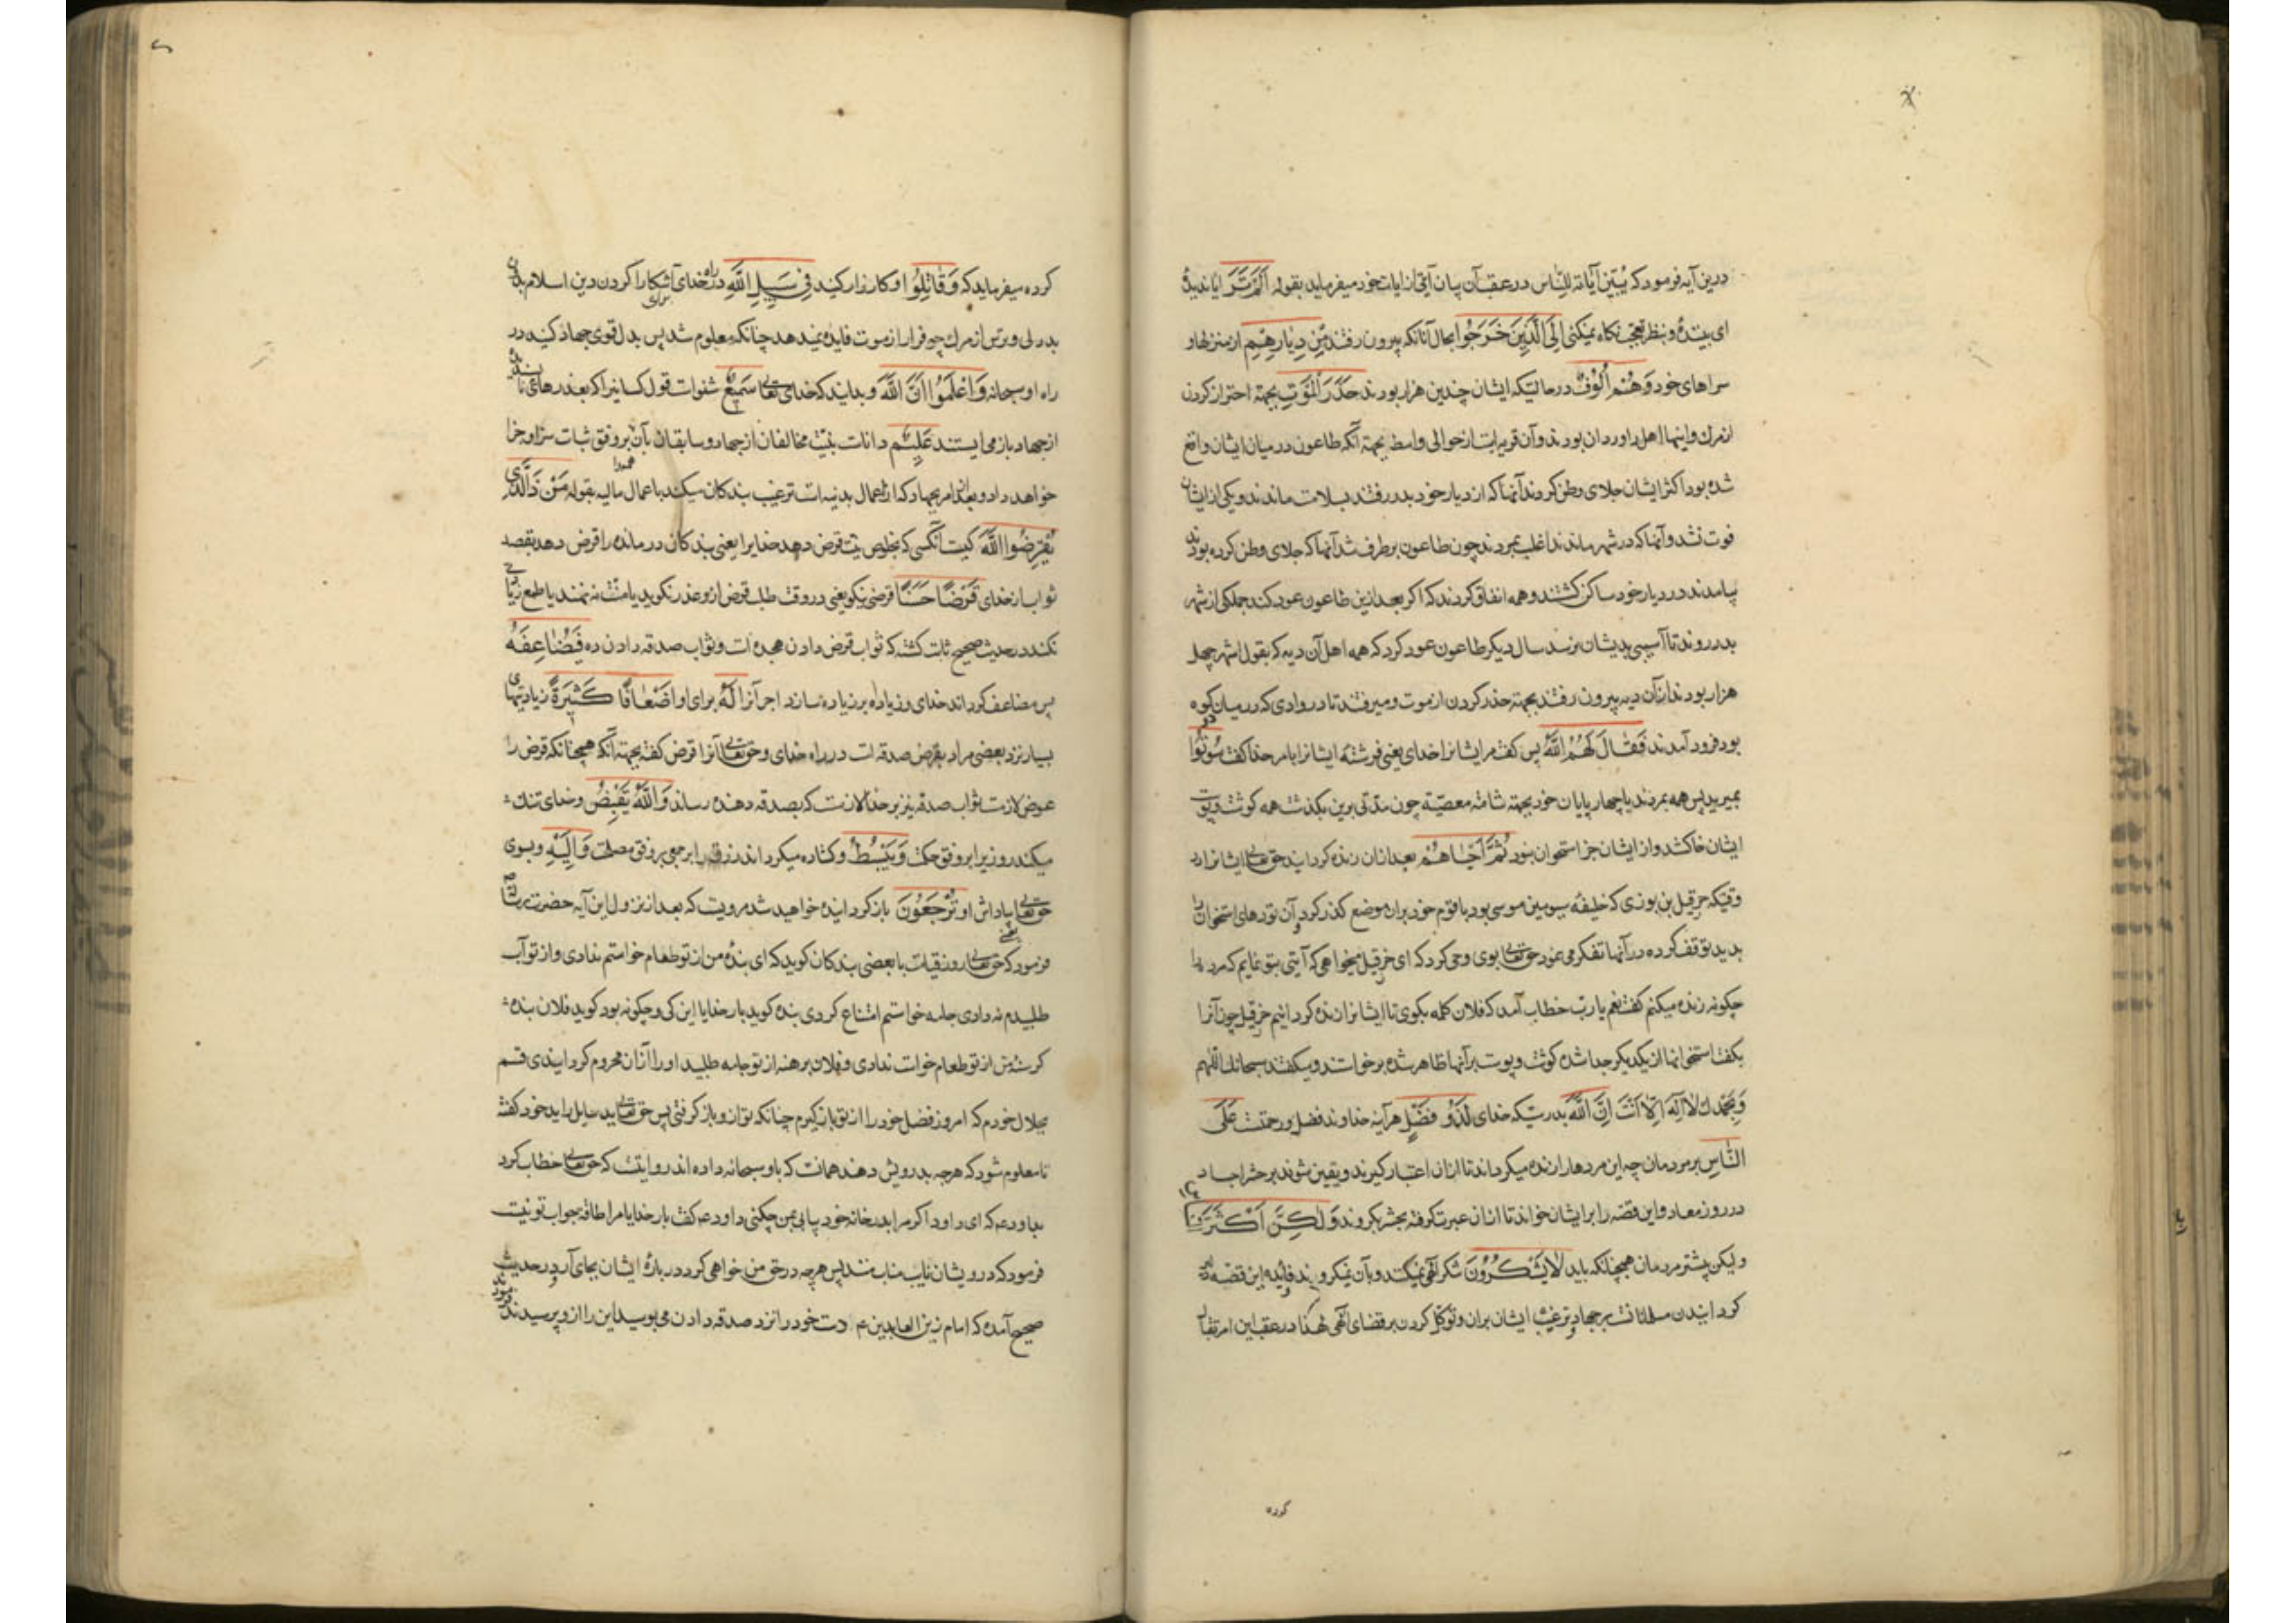 درین آیه فرمود که یُبَیِّنُ آیَاتِهِ لِلنَّاسِ در عقب آن بیان آیتی از ایات خود میفرماید بقوله اَلَمْ تَرَ ایا ندیدهٔ
ای بینده و بنظر تعجب نکاه نمیکنی اِلَی الَّذِینَ خَرَجُوا بحال آنانکه بیرون رفتند مِنْ دِیَارِهِمْ از منزلها و
سراهای خود وَهُمْ اُلُوفٌ در حالتیکه ایشان چندین هزار بودند حَذَرَ الْمَوْتِ بجهة احتراز کردن
از مرك و اینها اهل داوردان بودند و آن قریه است از حوالی واسط بجهة آنکه طاعون در میان ایشان واقع
شده بود اکثر ایشان جلای وطن کردند آنها که از دیار خود بدر رفتند بسلامت ماندند و یکی از ایشان
فوت نشد و آنها که در شهر ماندند اغلب بمردند چون طاعون برطرف شد آنها که جلای وطن کرده بودند
بیامدند در دیار خود ساکن کشتند و همه اتفاق کردند که اکر بعد ازین طاعون عود کند جملکی از شهر
بدر روند تا آسیبی بدیشان نرسد سال دیکر طاعون عود کرد که همه اهل آن دیه که بقول اشهر چهل
هزار بودند از آن دیه بیرون رفتند بجهة حذر کردن از موت و میرفتند تا در وادی که در میان دو کوه
بود فرود آمدند فَقَالَ لَهُمُ اللّٰهُ پس کفت مر ایشانرا خدای یعنی فرشته ایشانرا بامر خدا کفت مُوتُوا
بمیرید پس همه بمردند با چهار پایان خود بجهة شامت معصیة چون مدتی برین بکذشت همه کوشت و پوست
ایشان خاك شد و از ایشان جز استخوان نبود ثُمَّ اَحْیَاهُمْ بعد ازان زنده کردانید حق تعالی ایشانرا در
وقتیکه حزقیل بن بوزی که خلیفه سیومین موسی بود با قوم خود بران موضع کذر کرد و آن تودهای استخوان را
بدید توقف کرده در آنها تفکر می نمود حق تعالی بوی وحی کرد که ای حزقیل میخواهی که آیتی بتو نمایم که مرد را
چکونه زنده میکنم کفت نعم یا رب خطاب آمد که فلان کلمه بکوی تا ایشانرا زنده کردانیم حزقیل چون آنرا
بکفت استخوانها از یکدیکر جدا شده کوشت و پوست بر آنها ظاهر شده برخواستند و میکفتند سبحانك اللهم
وَ بِحَمْدِكَ لَا اِلٰهَ اِلَّا اَنْتَ اِنَّ اللّٰهَ بدرستیکه خدای لَذُو فَضْلٍ هر آینه خداوند فضل و رحمتست عَلَی
النَّاسِ بر مردمان چه این مردها را زنده میکرداند تا ازان اعتبار کیرند و یقین شوند بر حشر اجساد
در روز معاد و این قصه را بر ایشان خواند تا ازان عبرت کرفته بحشر بکروند وَلٰکِنَّ اَکْثَرَ
ولیکن بیشتر مردمان همچنانکه باید لَا یَشْکُرُونَ شکر الهی نمیکنند و بآن نمیکروند و فائده این قصه
کردانیدن مسلمانانست بر جهاد و ترغیب ایشان بران و توکل کردن بر قضای الهی لهذا در عقب این امر تقاتل
کرده
کرده میفرماید که وَقَاتِلُوا و کارزار کنید فِی سَبِیلِ اللّٰهِ در راه خدای برای آشکارا کردن دین اسلام نه بآن
بددلی و ترس از مرك چو فرار از موت فایده نمیدهد چنانکه معلوم شد پس بدل قوی جهاد کنید در
راه او سبحانه وَاعْلَمُوا اَنَّ اللّٰهَ و بدانید که خدای تعالی سَمِیعٌ شنواست قول کسانیرا که بعذرهای
از جهاد باز می ایستند عَلِیمٌ داناست بنیت مخالفان از جهاد و سابقان بآن بر وفق ثبات سزا و جزا
خواهد داد و بعد از امر بجهاد که از اعمال بدنیه است ترغیب بندکان میکند باعمال مالیه بقوله مَنْ ذَا الَّذِی
یُقْرِضُوا اللّٰهَ کیست آنکسی که بخلوص نیت قرض دهد خدایرا یعنی بندکان درمانده را قرض دهد بقصد
ثواب از خدای قَرْضًا حَسَنًا قرضی نیکو یعنی در وقت طلب قرض ازو عذر نکوید یا منت ننهند یا طمع زیاتی
نکند در حدیث صحیح ثابت کشته که ثواب قرض دادن هجده است و ثواب صدقه دادن ده فَیُضَاعِفَهُ
پس مضاعف کرداند خدای و زیاده بر زیاده سازد اجر آنرا لَهُ برای او اَضْعَافًا کَثِیرَةً زیادتیهای
بسیار نزد بعضی مراد بقرض صدقه است در راه خدای و حق تعالی آنرا قرض کفته بجهة آنکه همچنانکه قرض را
عوض لازمست ثواب صدقه نیز بر خدا لازمست که بصدقه دهنده رساند وَاللّٰهُ یَقْبِضُ و خدای تنك
میکند روزیرا بر وفق حکمت وَیَبْسُطُ و کشاده میکرداند رزق را بر جمعی بر وفق مصلحت وَاِلَیْهِ و بسوی
حق تعالی پاداش او تُرْجَعُونَ باز کردانیده خواهید شد مرویست که بعد از نزول این آیه حضرت رسالت
فرمود که حق تعالی روز قیامت با بعضی بندکان کوید که ای بندهٔ من از تو طعام خواستم ندادی و از تو آب
طلبیدم نه دادی جامه خواستم امتناع کردی بنده کوید بار خدایا این کی و چکونه بود کوید فلان بنده
کرسنه من از تو طعام خواست ندادی و فلان برهنه از تو جامه طلبید او را ازان محروم کردانیدی قسم
بجلال خودم که امروز فضل خود را از تو باز کیرم چنانکه تو ازو باز کرفتی پس حق تعالی ید سایل را ید خود کفته
تا معلوم شود که هرچه بدرویش دهند همانست که باو سبحانه داده اند روایتست که حق تعالی خطاب کرد
بداود ع که ای داود اکر مرا بدر خانه خود بیابی بمن چکنی داود ع کفت بار خدایا مرا طاقة جواب تو نیست
فرمود که درویشان نایب مناب منند پس هرچه در حق من خواهی کرد در بارهٔ ایشان بجای آر و در حدیث
صحیح آمده که امام زین العابدین ع دست خود را نزد صدقه دادن می بوسید این را ازو پرسیدند فرمود